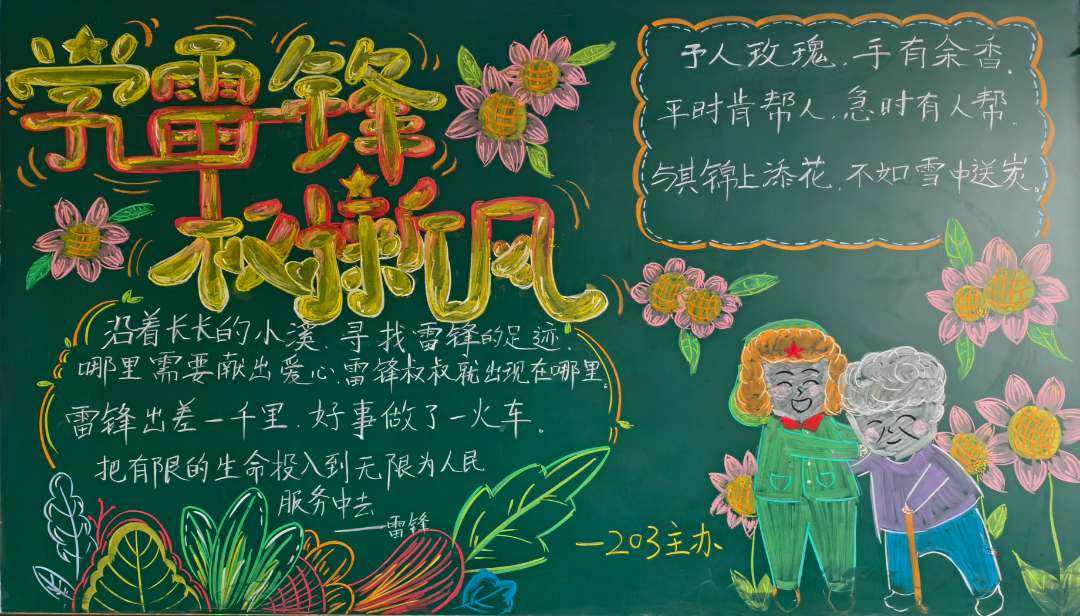 学雷锋
树新风
予人玫瑰，手有余香。
平时肯帮人，急时有人帮。
与其锦上添花，不如雪中送炭。
沿着长长的小溪，寻找雷锋的足迹，
哪里需要献出爱心，雷锋叔叔就出现在哪里。
雷锋出差一千里，好事做了一火车。
把有限的生命投入到无限为人民
服务中去
——雷锋
—203主办